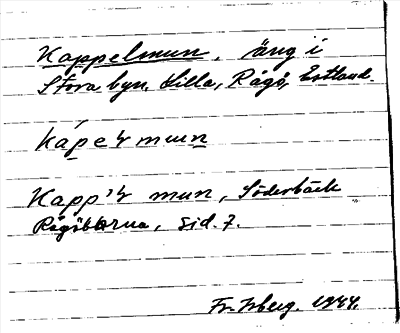 Kappelmun, äng i
Stora byn. Lilla, Rågö, Estland.
kápe'r mun
Kapp'r mun, Söderbäck
Rågöborna, sid. 7.
Fr. Isberg. 1944.